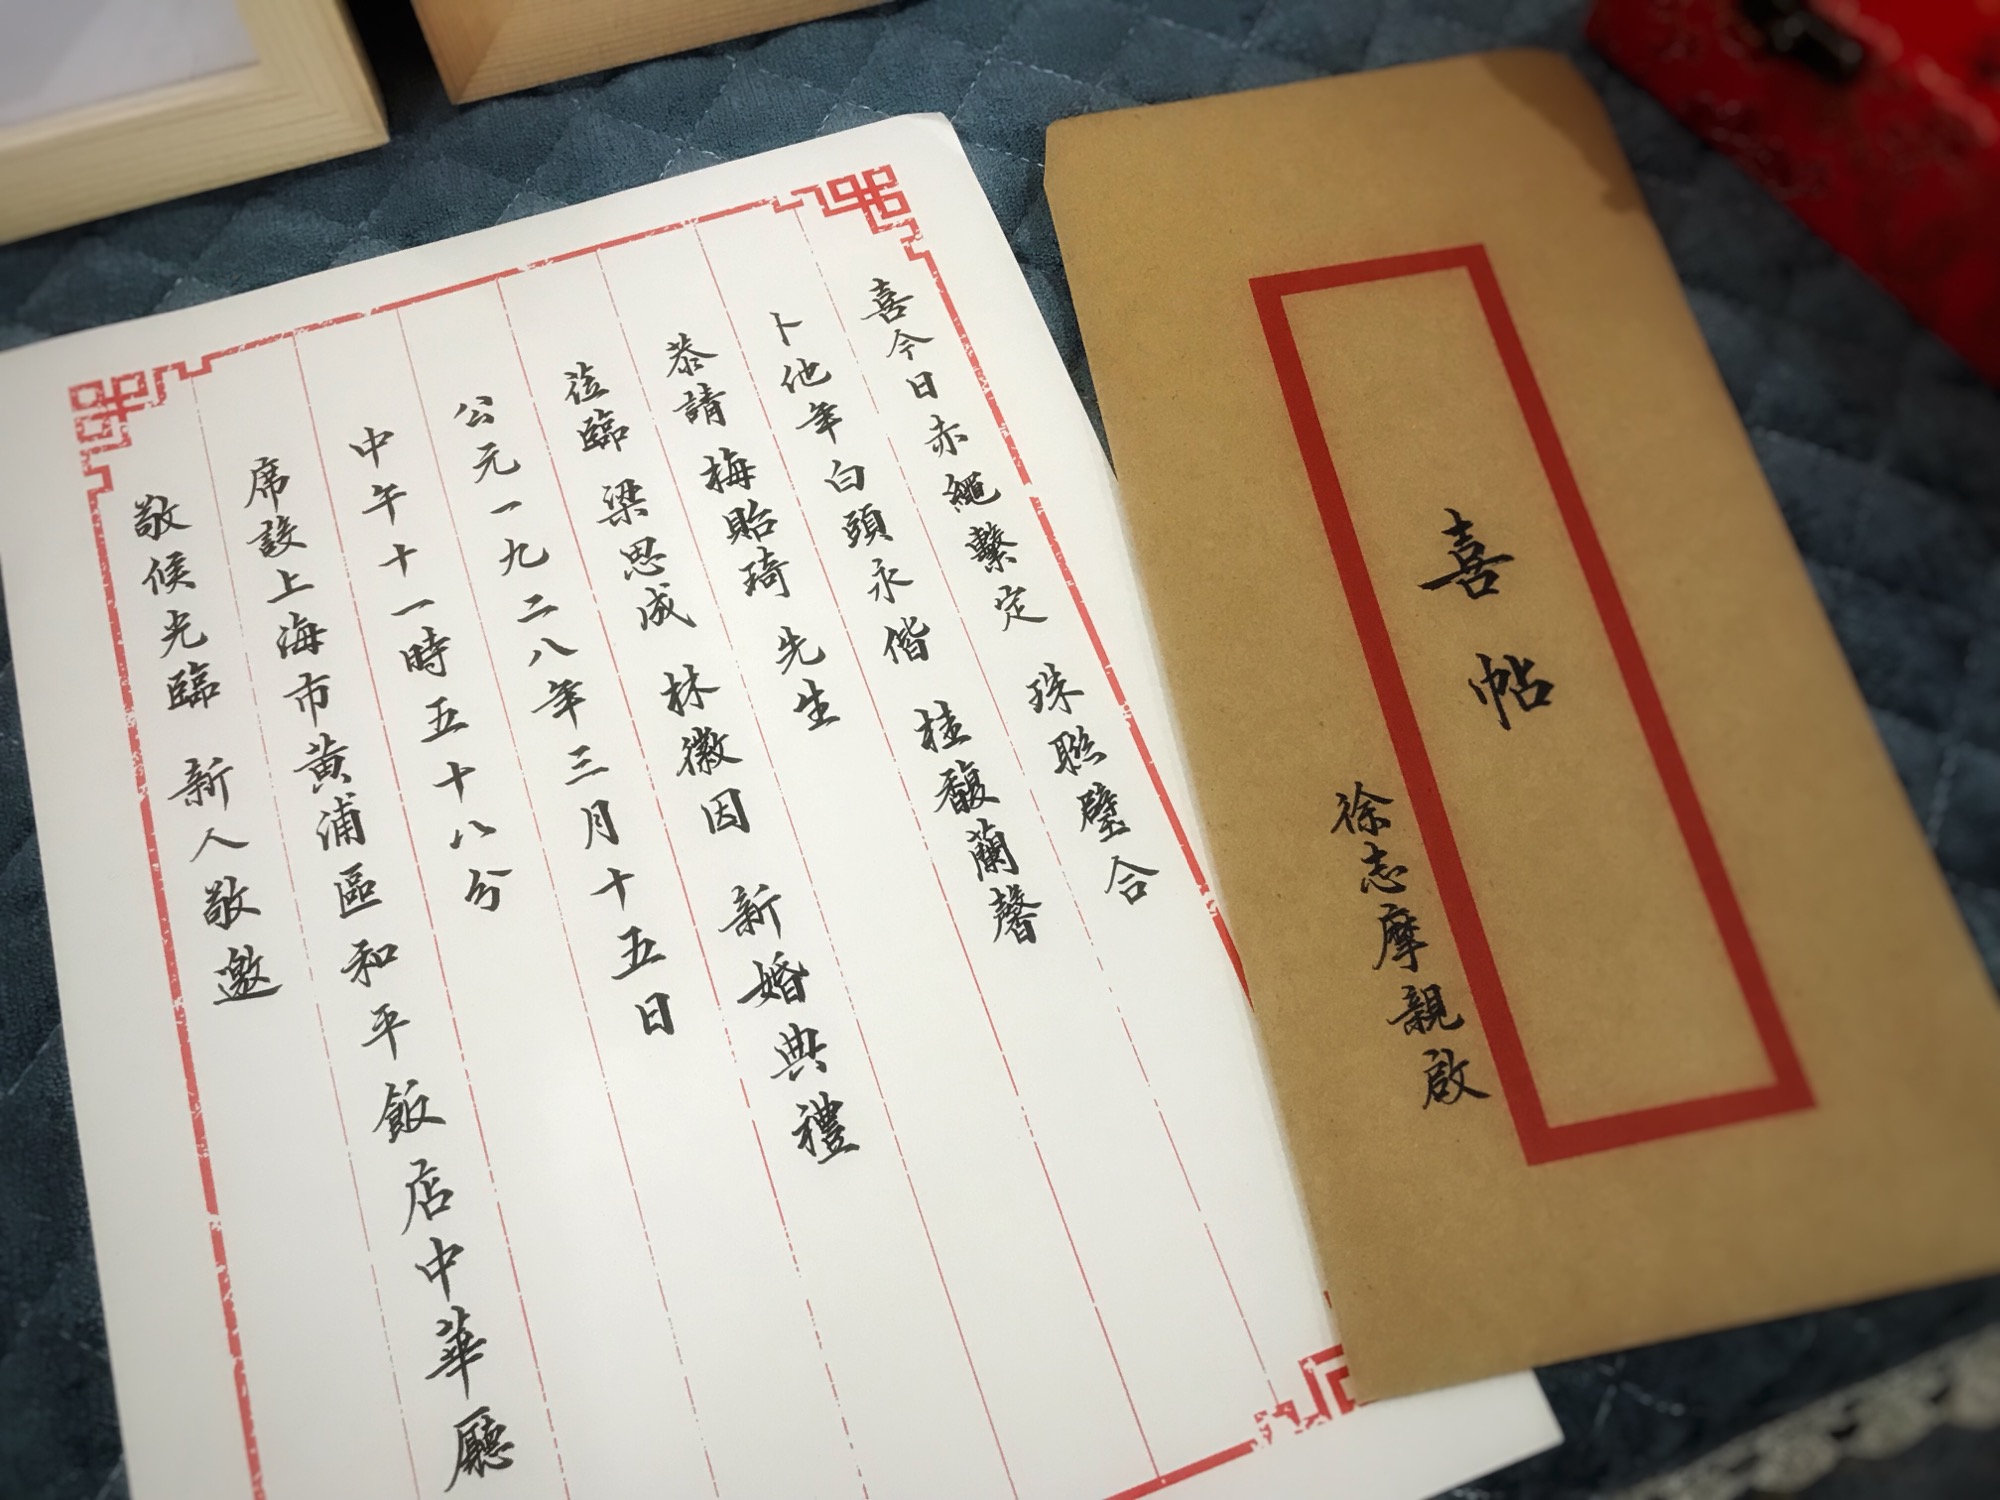 喜今日赤繩繫定 珠聯璧合
卜他年白頭永偕 桂馥蘭馨
恭請 梅貽琦 先生
蒞臨 梁思成 林徽因 新婚典禮
公元一九二八年三月十五日
中午十一時五十八分
席設上海市黄浦區和平飯店中華廳
敬候光臨 新人敬邀
喜帖
徐志摩親啟